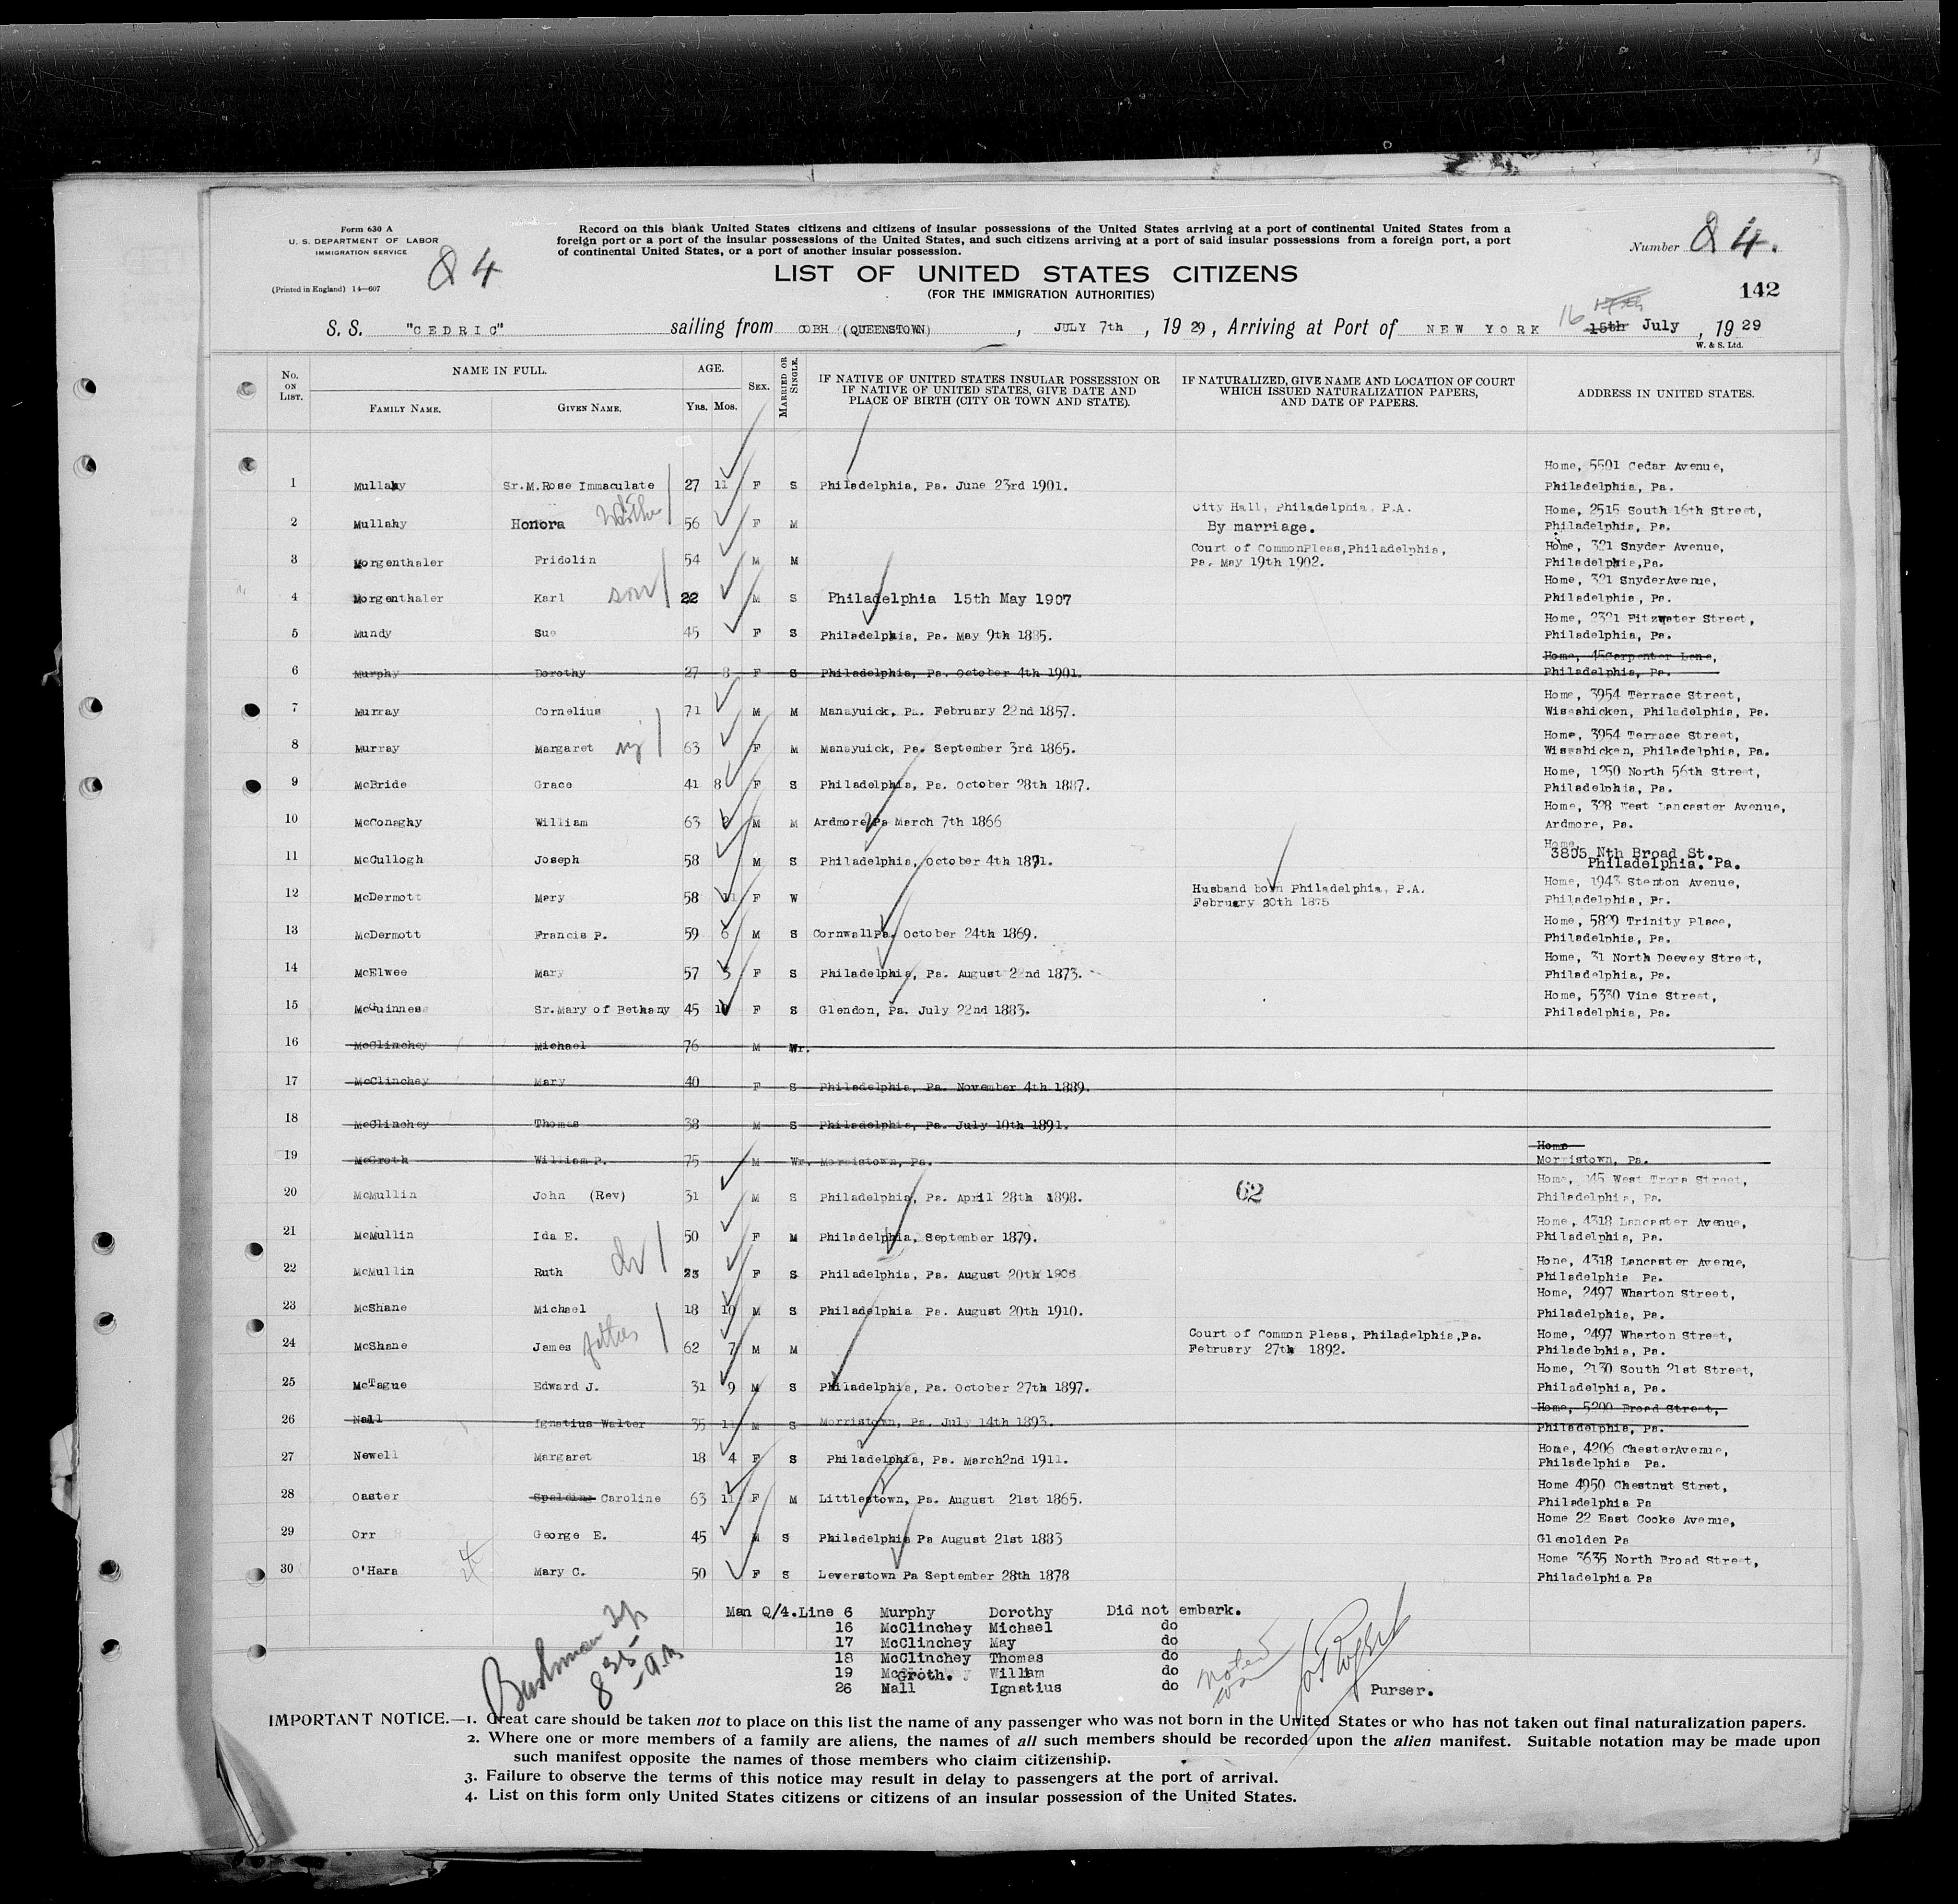 Form 630 A
U. S. DEPARTMENT OF LABOR
IMMIGRATION SERVICE
(Printed in England) 14—607
Q 4
Record on this blank United States citizens and citizens of insular possessions of the United States arriving at a port of continental United States from a
foreign port or a port of the insular possessions of the United States, and such citizens arriving at a port of said insular possessions from a foreign port, a port
of continental United States, or a port of another insular possession.
LIST OF UNITED STATES CITIZENS
(FOR THE IMMIGRATION AUTHORITIES)
Number Q 4.
142
S. S. "CEDRIC" sailing from COBH (QUEENSTOWN), JULY 7th, 19 29, Arriving at Port of NEW YORK 16 17th 15th July, 19 29
W. & S. Ltd.
No. ON LIST. NAME IN FULL. FAMILY NAME. GIVEN NAME. AGE. Yrs. Mos. SEX. MARRIED OR SINGLE. IF NATIVE OF UNITED STATES INSULAR POSSESSION OR IF NATIVE OF UNITED STATES, GIVE DATE AND PLACE OF BIRTH (CITY OR TOWN AND STATE). IF NATURALIZED, GIVE NAME AND LOCATION OF COURT WHICH ISSUED NATURALIZATION PAPERS, AND DATE OF PAPERS. ADDRESS IN UNITED STATES.
1 Mullahy Sr.M.Rose Immaculate 27 11 F S Philadelphia, Pa. June 23rd 1901. Home, 5501 Cedar Avenue, Philadelphia, Pa.
2 Mullahy Honora 56 F M City Hall, Philadelphia, P.A. By marriage. Home, 2515 South 16th Street, Philadelphia, Pa.
3 Morgenthaler Fridolin 54 M M Court of CommonPleas,Philadelphia, Pa. May 19th 1902. Home, 321 Snyder Avenue, Philadelphia,Pa.
4 Morgenthaler Karl son 22 M S Philadelphia 15th May 1907 Home, 321 SnyderAvenue, Philadelphia, Pa.
5 Mundy Sue 45 F S Philadelphia, Pa. May 9th 1885. Home, 2321 Fitzwater Street, Philadelphia, Pa.
6 Murphy Dorothy 27 8 F S Philadelphia, Pa. October 4th 1901. Home, 45Carpenter Lane, Philadelphia, Pa.
7 Murray Cornelius 71 M M Manayuick, Pa. February 22nd 1857. Home, 3954 Terrace Street, Wissahicken, Philadelphia, Pa.
8 Murray Margaret 63 F M Manayuick, Pa. September 3rd 1865. Home, 3954 Terrace Street, Wissahicken, Philadelphia, Pa.
9 McBride Grace 41 8 F S Philadelphia, Pa. October 28th 1887. Home, 1250 North 56th Street, Philadelphia, Pa.
10 McConaghy William 63 M M Ardmore Pa March 7th 1866 Home, 328 West Lancaster Avenue, Ardmore, Pa.
11 McCullogh Joseph 58 M S Philadelphia, October 4th 1871. Home, 3805 Nth Broad St. Philadelphia. Pa.
12 McDermott Mary 58 11 F W Husband born Philadelphia, P.A. February 20th 1875 Home, 1943 Stenton Avenue, Philadelphia, Pa.
13 McDermott Francis P. 59 6 M S CornwallPa. October 24th 1869. Home, 5829 Trinity Place, Philadelphia, Pa.
14 McElwee Mary 57 5 F S Philadelphia, Pa. August 22nd 1873. Home, 31 North Deevey Street, Philadelphia, Pa.
15 McGuinness Sr.Mary of Bethany 45 10 F S Glendon, Pa. July 22nd 1883. Home, 5330 Vine Street, Philadelphia, Pa.
16 McClinchey Michael 76 M Wr.
17 McClinchey Mary 40 F S Philadelphia, Pa. November 4th 1889.
18 McClinchey Thomas 38 M S Philadelphia, Pa. July 10th 1891.
19 McGroth William P. 75 M Wr. Morristown, Pa. Home Morristown, Pa.
20 McMullin John (Rev) 31 M S Philadelphia, Pa. April 28th 1898. 62 Home, 145 West Street, Philadelphia, Pa.
21 McMullin Ida E. 50 F M Philadelphia, September 1879. Home, 4318 Lancaster Avenue, Philadelphia, Pa.
22 McMullin Ruth 23 F S Philadelphia, Pa. August 20th 1906 Home, 4318 Lancaster Avenue, Philadelphia Pa.
23 McShane Michael 18 10 M S Philadelphia Pa. August 20th 1910. Home, 2497 Wharton Street, Philadelphia, Pa.
24 McShane James father 62 7 M M Court of Common Pleas, Philadelphia,Pa. February 27th 1892. Home, 2497 Wharton Street, Philadelphia, Pa.
25 McTague Edward J. 31 9 M S Philadelphia, Pa. October 27th 1897. Home, 2130 South 21st Street, Philadelphia, Pa.
26 Nall Ignatius Walter 35 11 M S Morristown, Pa. July 14th 1893. Home, 5200 Broad Street, Philadelphia, Pa.
27 Newell Margaret 18 4 F S Philadelphia, Pa. March2nd 1911. Home, 4206 ChesterAvenue, Philadelphia Pa.
28 Oaster Spalding Caroline 63 11 F M Littlestown, Pa. August 21st 1865. Home 4950 Chestnut Street, Philadelphia Pa
29 Orr George E. 45 M S Philadelphia Pa August 21st 1883 Home 22 East Cooke Avenue, Glenolden Pa
30 O'Hara Mary C. 50 F S Leverstown Pa September 28th 1878 Home 3635 North Broad Street, Philadelphia Pa
Man Q/4.Line 6 Murphy Dorothy Did not embark.
16 McClinchey Michael do
17 McClinchey May do
18 McClinchey Thomas do
19 McGroth. William do
26 Nall Ignatius do
Purser.
Bushman
8 35 a.m
noted
IMPORTANT NOTICE.—1. Great care should be taken not to place on this list the name of any passenger who was not born in the United States or who has not taken out final naturalization papers.
2. Where one or more members of a family are aliens, the names of all such members should be recorded upon the alien manifest. Suitable notation may be made upon
such manifest opposite the names of those members who claim citizenship.
3. Failure to observe the terms of this notice may result in delay to passengers at the port of arrival.
4. List on this form only United States citizens or citizens of an insular possession of the United States.